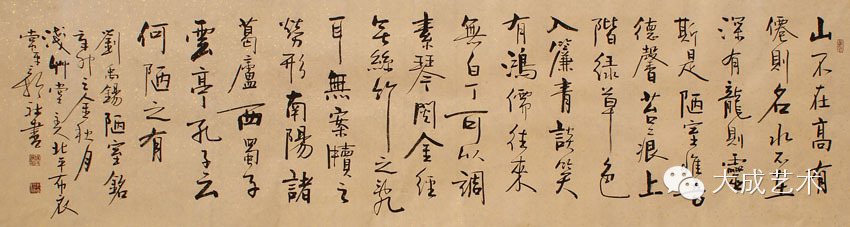 山不在高有
僊則名水不在
深有龍則靈
斯是陋室惟吾
德馨苔痕上
階緑草色
入簾青談笑
有鴻儒往來
無白丁可以調
素琴閱金經
無絲竹之亂
耳無案牘之
勞形南陽諸
葛廬西蜀子
雲亭孔子云
何陋之有
劉禹錫陋室銘
辛卯之金秋月
淺艸堂主北平布衣
書
大成艺术